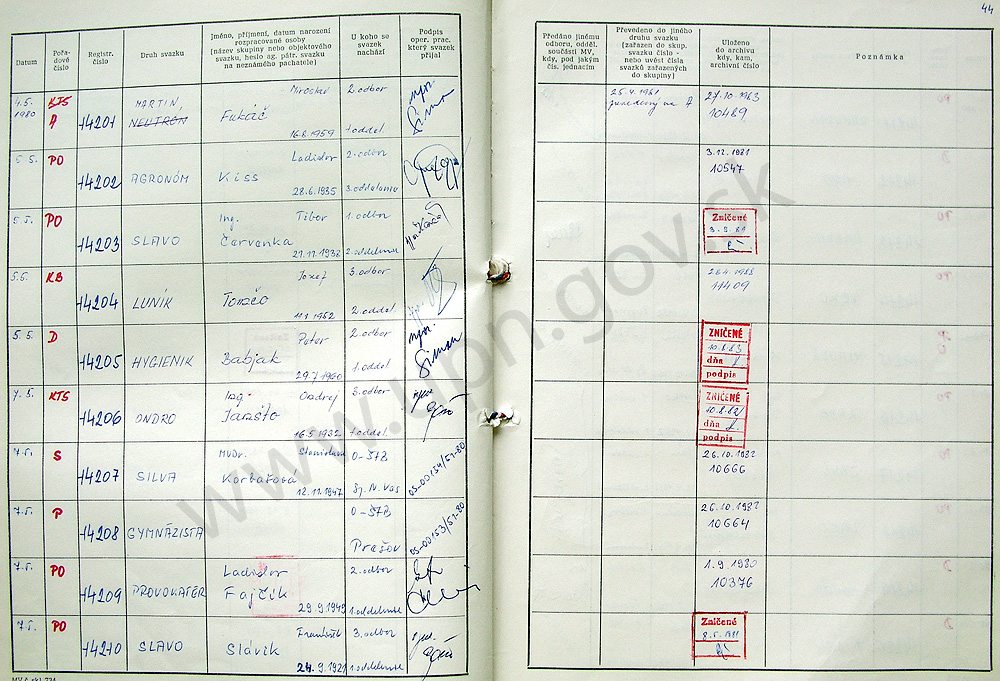 44
Datum
Pořa-
dové
číslo
Registr.
číslo
Druh svazku
Jméno, příjmení, datum narození
rozpracované osoby
(název skupiny nebo objektového
svazku, heslo ag. pátr. svazku
na neznámého pachatele)
U koho se
svazek
nachází
Podpis
oper. prac.
který svazek
přijal
Předáno jinému
odboru, odděl.
součásti MV,
kdy, pod jakým
čís. jednacím
Převedeno do jiného
druhu svazku
(zařazen do skup.
svazku číslo -
nebo uvést čísla
svazků zařazených
do skupiny)
Uloženo
do archivu
kdy, kam,
archivní číslo
Poznámka
4.5. KTS MARTIN, Miroslav 2. odbor
1980 A 14201 NEUTRON 16.8.1959 1. oddel.
25.4.1981 27.10.1983
10489
5.5. PO 14202 AGRONÓM Ladislav Kiss 28.6.1935 2. odbor 3. oddelenie
3.12.1981
10547
5.5. PO 14203 SLAVO Ing. Tibor Červenka 21.11.1938 1. odbor 2. oddelenie
Zničené
5.5. KB 14204 LUNÍK Jozef 3. odbor 2. oddel.
11409
5.5. D 14205 HYGIENIK Peter Babjak 2. odbor 1. oddel.
ZNIČENÉ
10.8.83
dňa
podpis
7.5. KTS 14206 ONDRO Ing. Ondrej 16.5.1932 3. odbor 1. oddel.
ZNIČENÉ
dňa
podpis
7.5. S 14207 SILVA MVDr. Stanislava 12.11.1947 O-ŠTB Sp. N. Ves OS-00154/51-80
26.10.1982
10666
7.5. P 14208 GYMNÁZISTA O-ŠTB Prešov OS-00153/51-80
26.10.1982
10664
7.5. PO 14209 PROVOKATÉR Ladislav Fajčík 29.9.1949 2. odbor 1. oddelenie
1.9.1980
10376
7.5. PO 14210 SLAVO František Slávik 24.9.1921 3. odbor 1. oddelenie
Zničené
8.5.1981
www.upn.gov.sk